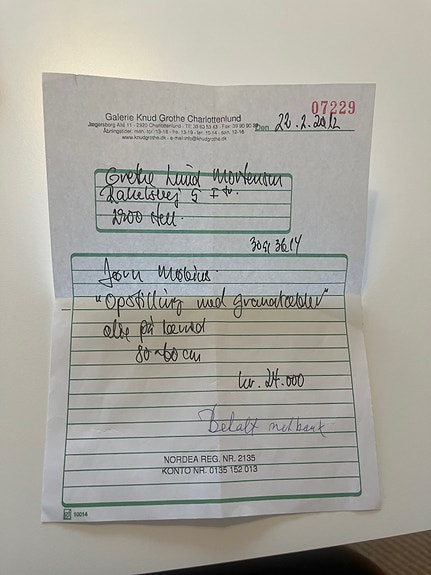 07229
Galerie Knud Grothe Charlottenlund
Jægersborg Allé 11 - 2920 Charlottenlund - Tlf. 39 63 63 63 - Fax 39 90 90 39
Åbningstider: man. lør. 13-18 - fre. 13-19 - lør. 10-14 - søn. 12-16
www.knudgrothe.dk - e-mail: info@knudgrothe.dk
Den 22.2.2012
Grethe Lund Mortensen
5
2900 Hell.
Jørn Mobius.
"Opstilling med granatæbler"
olie på lærred
80 x 60 cm
kr. 24.000
Betalt netbank
NORDEA REG. NR. 2135
KONTO NR. 0135 152 013
10014